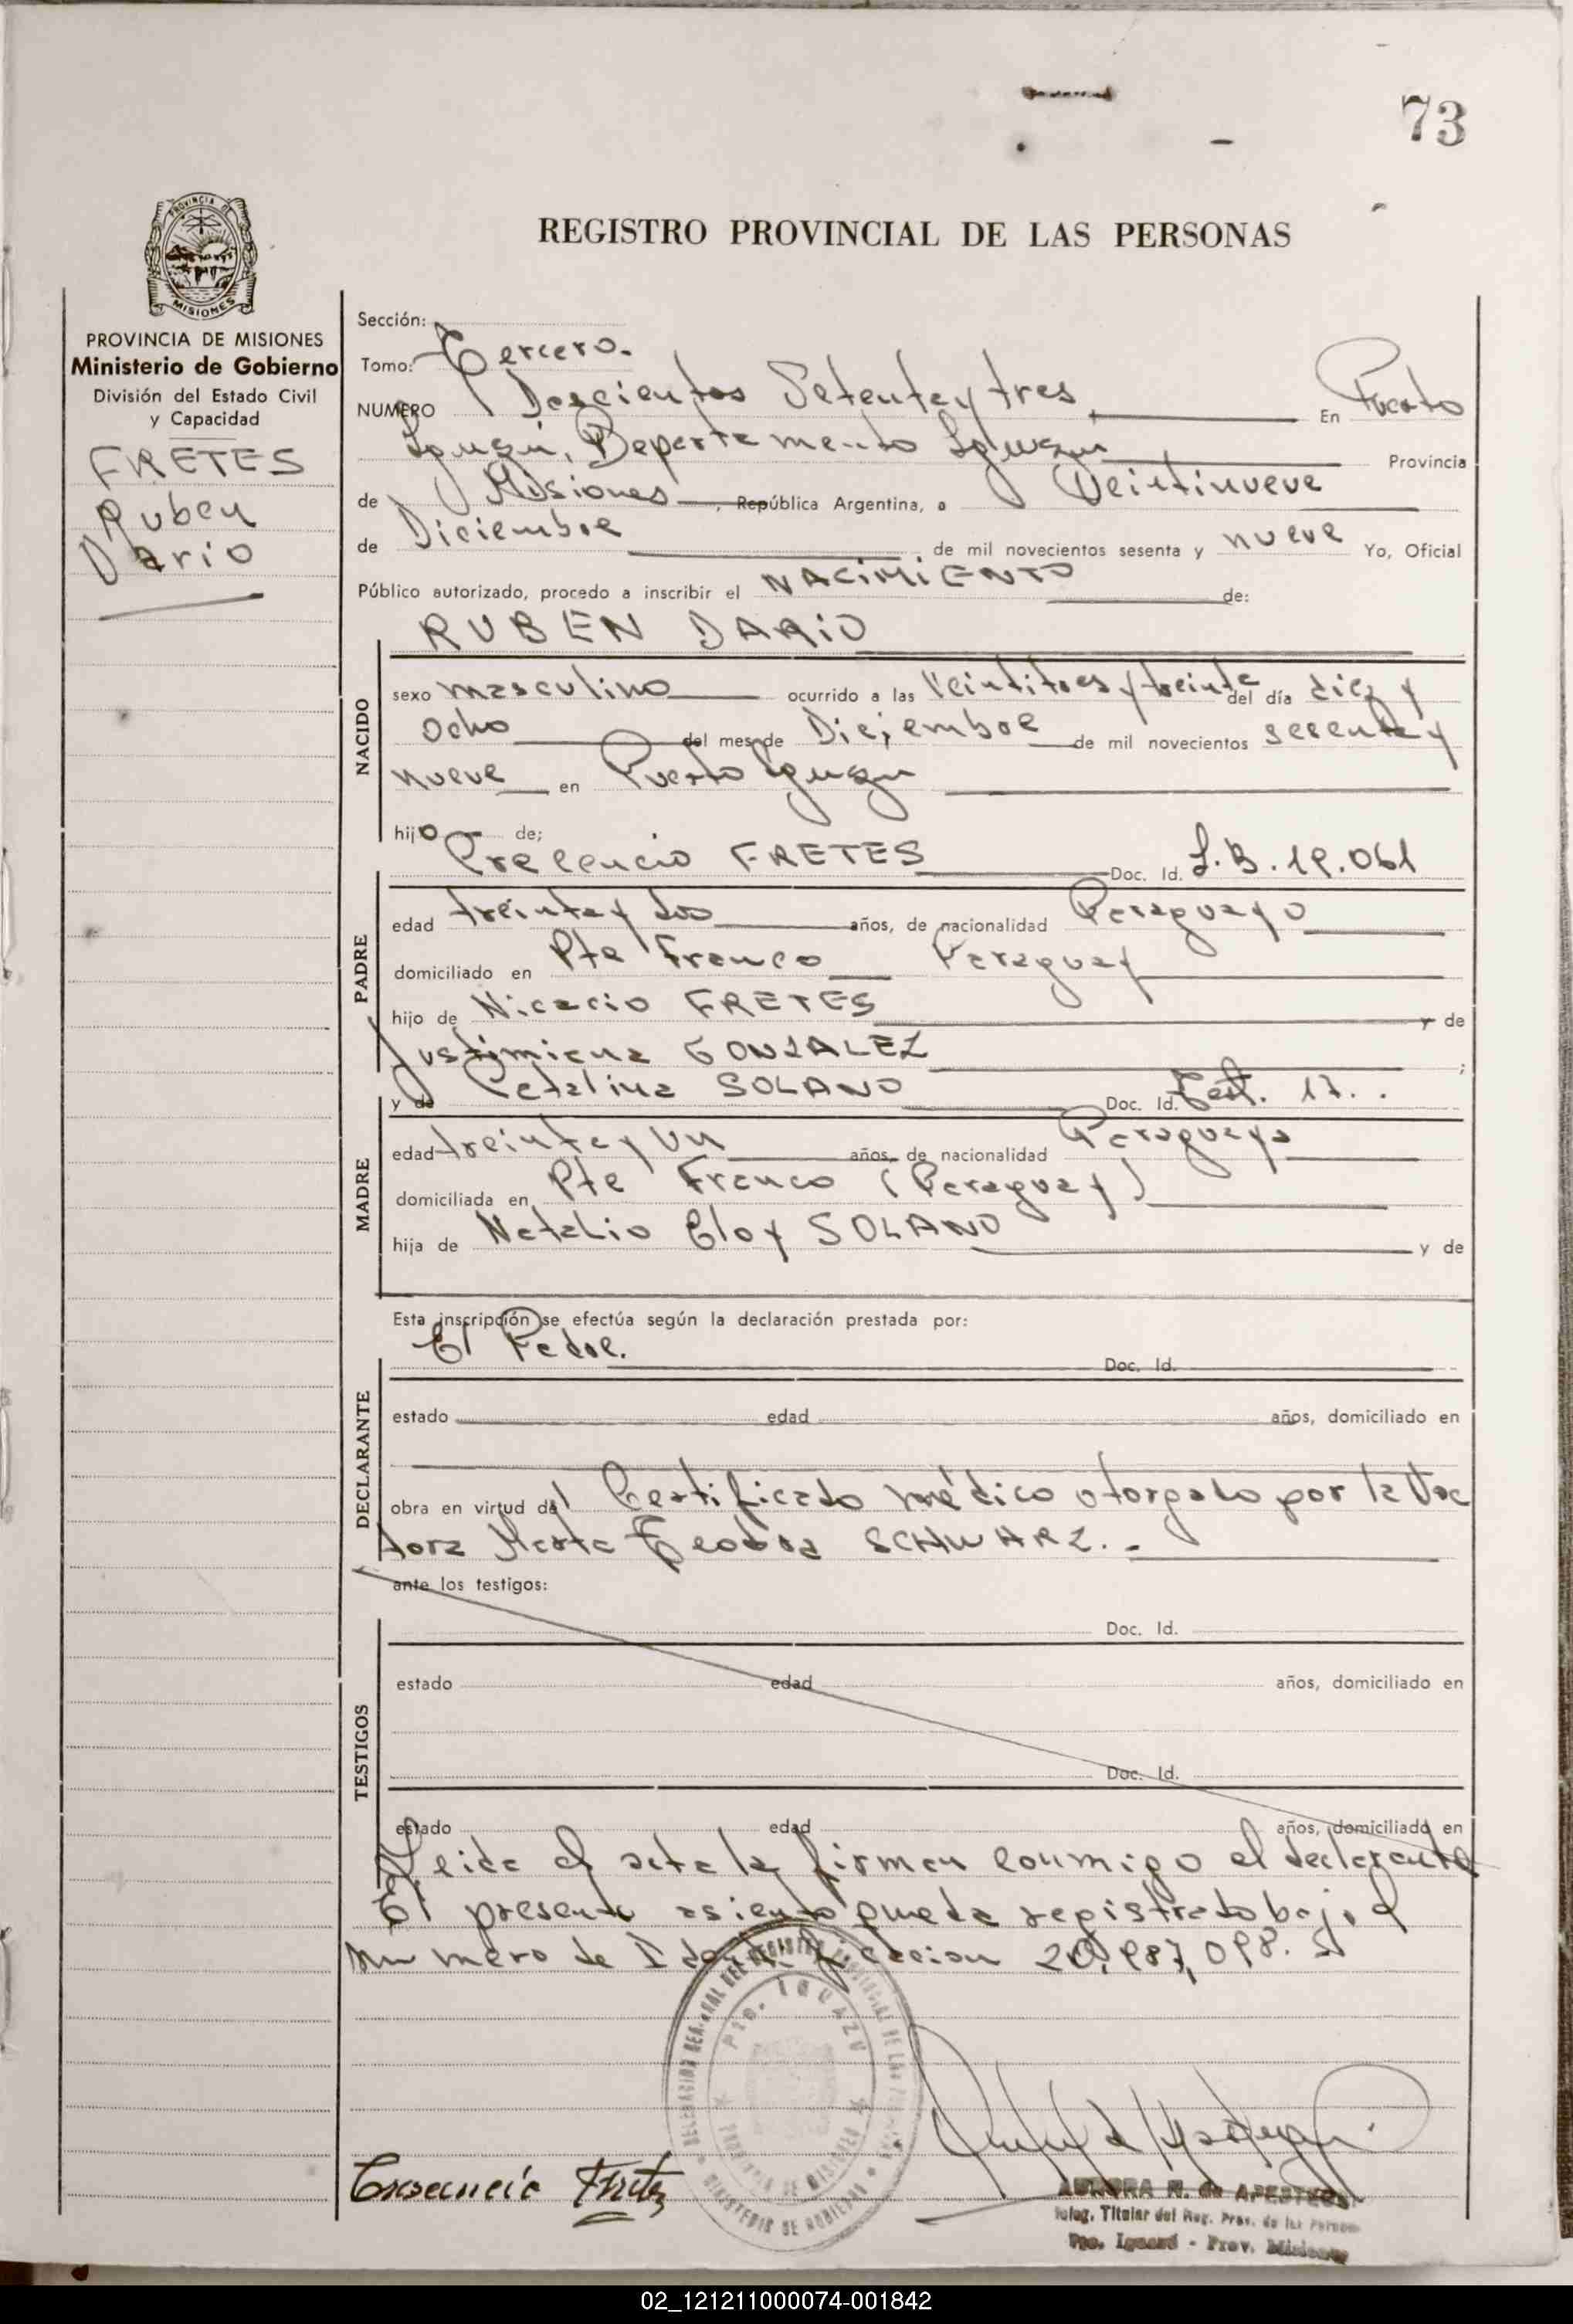 73
PROVINCIA DE
MISIONES
REGISTRO PROVINCIAL DE LAS PERSONAS
PROVINCIA DE MISIONES
Ministerio de Gobierno
División del Estado Civil
y Capacidad
FRETES
Ruben
Dario
Sección:
Tomo: Tercero.
NUMERO Doscientos Setenta y tres En Puerto
Iguazu, Departamento Iguazu Provincia
de Misiones, República Argentina, a Veintinueve
de Diciembre de mil novecientos sesenta y nueve Yo, Oficial
Público autorizado, procedo a inscribir el NACIMIENTO de:
RUBEN DARIO
NACIDO
sexo masculino ocurrido a las Veintitres y treinta del día diez y
ocho del mes de Diciembre de mil novecientos sesenta y
nueve en Puerto Iguazu
hijo de;
FRETES Doc. Id. 061
PADRE
edad treinta y dos años, de nacionalidad Paraguayo
domiciliado en Pte Franco Paraguay
hijo de Nicacio FRETES y de
GONZALEZ ;
y de Catalina SOLANO Doc. Id. 17..
MADRE
edad treinta y un años, de nacionalidad Paraguaya
domiciliada en Pte Franco (Paraguay)
hija de Natalio Eloy SOLANO y de
Esta inscripción se efectúa según la declaración prestada por:
El Padre. Doc. Id.
DECLARANTE
estado edad años, domiciliado en
obra en virtud del Certificado médico otorgado por la Doc
tora Marta Teodora SCHWARZ..
ante los testigos:
TESTIGOS
Doc. Id.
estado edad años, domiciliado en
Doc. Id.
estado edad años, domiciliado en
Leida el acta la firman conmigo el declarante
El presente asiento queda registrado bajo el
numero de Identificacion 20.987,098.
PTO. IGUAZU
PROVINCIA DE MISIONES
MINISTERIO DE GOBIERNO
AURORA R. de
Titular del Reg. Prov. de las Person
Pto. Iguazú - Prov. Misiones
02_121211000074-001842